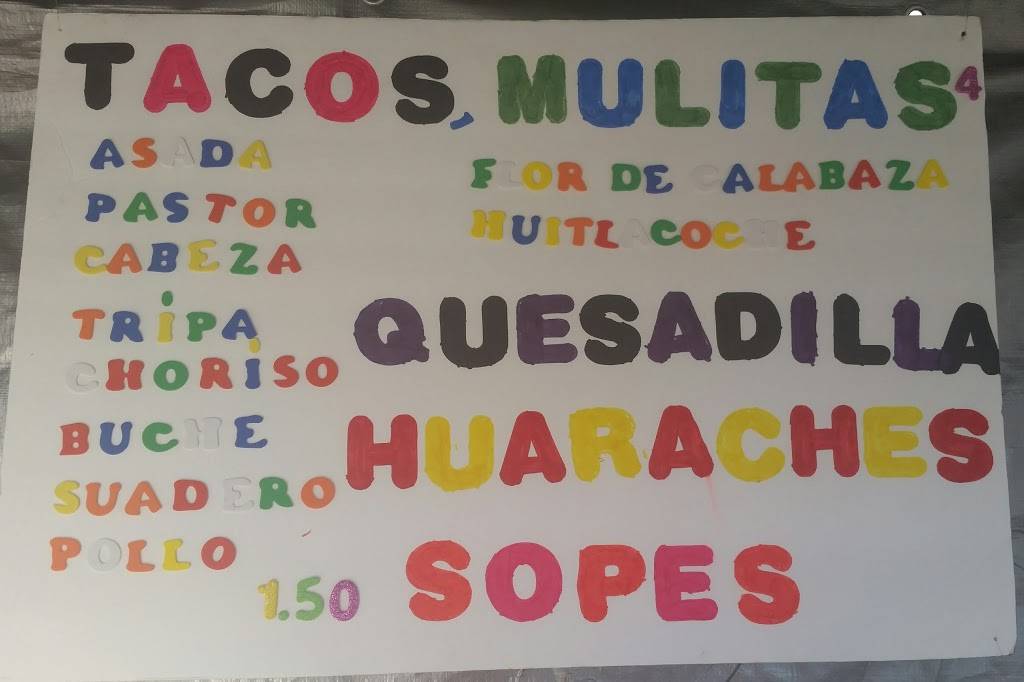 TACOS, MULITAS 4
ASADA
PASTOR
CABEZA
TRIPA
CHORISO
BUCHE
SUADERO
POLLO
1.50
FLOR DE CALABAZA
HUITLACOCHE
QUESADILLA
HUARACHES
SOPES